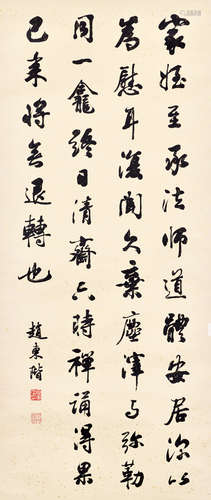 家姪至承法師道體安居深以
為慰耳復聞久棄塵滓与弥勒
同一龕終日清齋六時禪誦得果
已来將無退轉也
趙東階